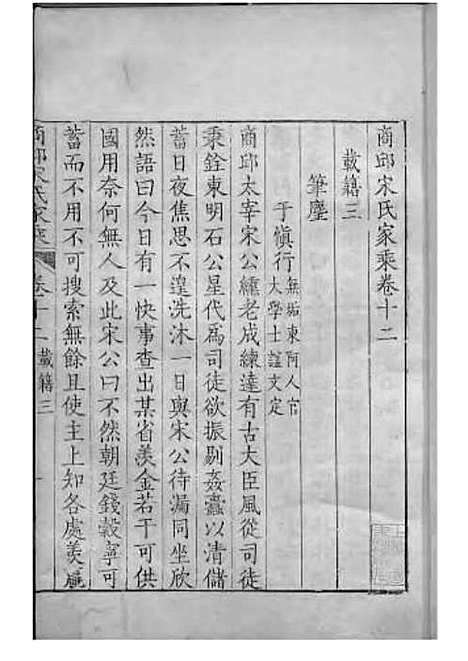 商邱宋氏家乘卷十二
載籍三
筆塵
于慎行 無垢東阿人官
大學士謚文定
商邱太宰宋公纁老成練達有古大臣風從司徒
秉銓東明石公星代為司徒欲振剔姦蠹以清儲
蓄日夜焦思不遑洗沐一日與宋公待漏同坐欣
然語曰今日有一快事查出某省羡金若干可供
國用奈何無人及此宋公曰不然朝廷錢穀寧可
蓄而不用不可搜索無餘且使主上知各處羡
商邱宋氏家乘 卷十二 載籍三